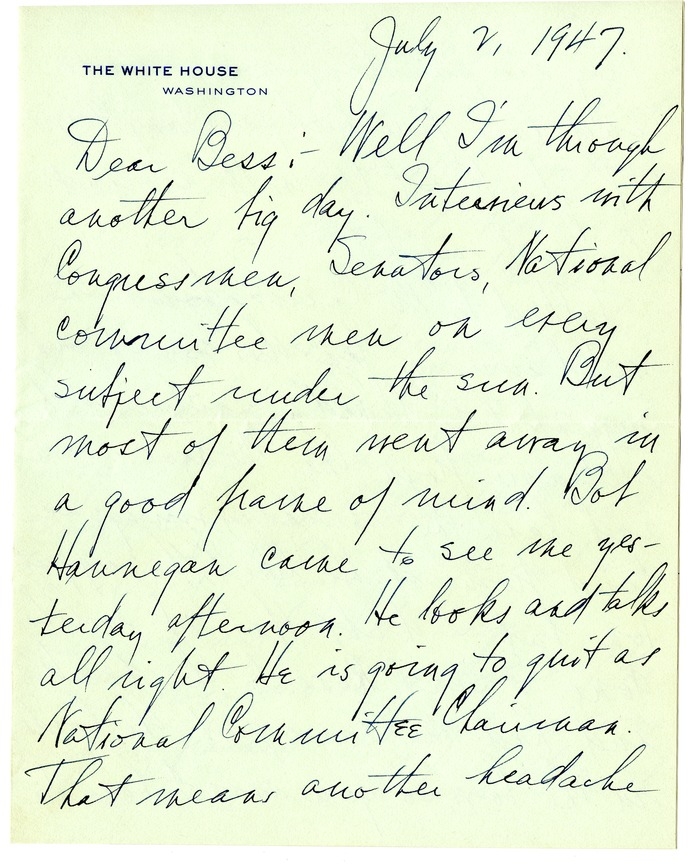 July 2, 1947.
THE WHITE HOUSE
WASHINGTON
Dear Bess:- Well I'm through
another big day. Interviews with
Congressmen, Senators, National
committee men on every
subject under the sun. But
most of them went away in
a good frame of mind. Bob
Hannegan came to see me yes-
terday afternoon. He looks and talks
all right. He is going to quit as
National Committee Chairman.
That means another headache